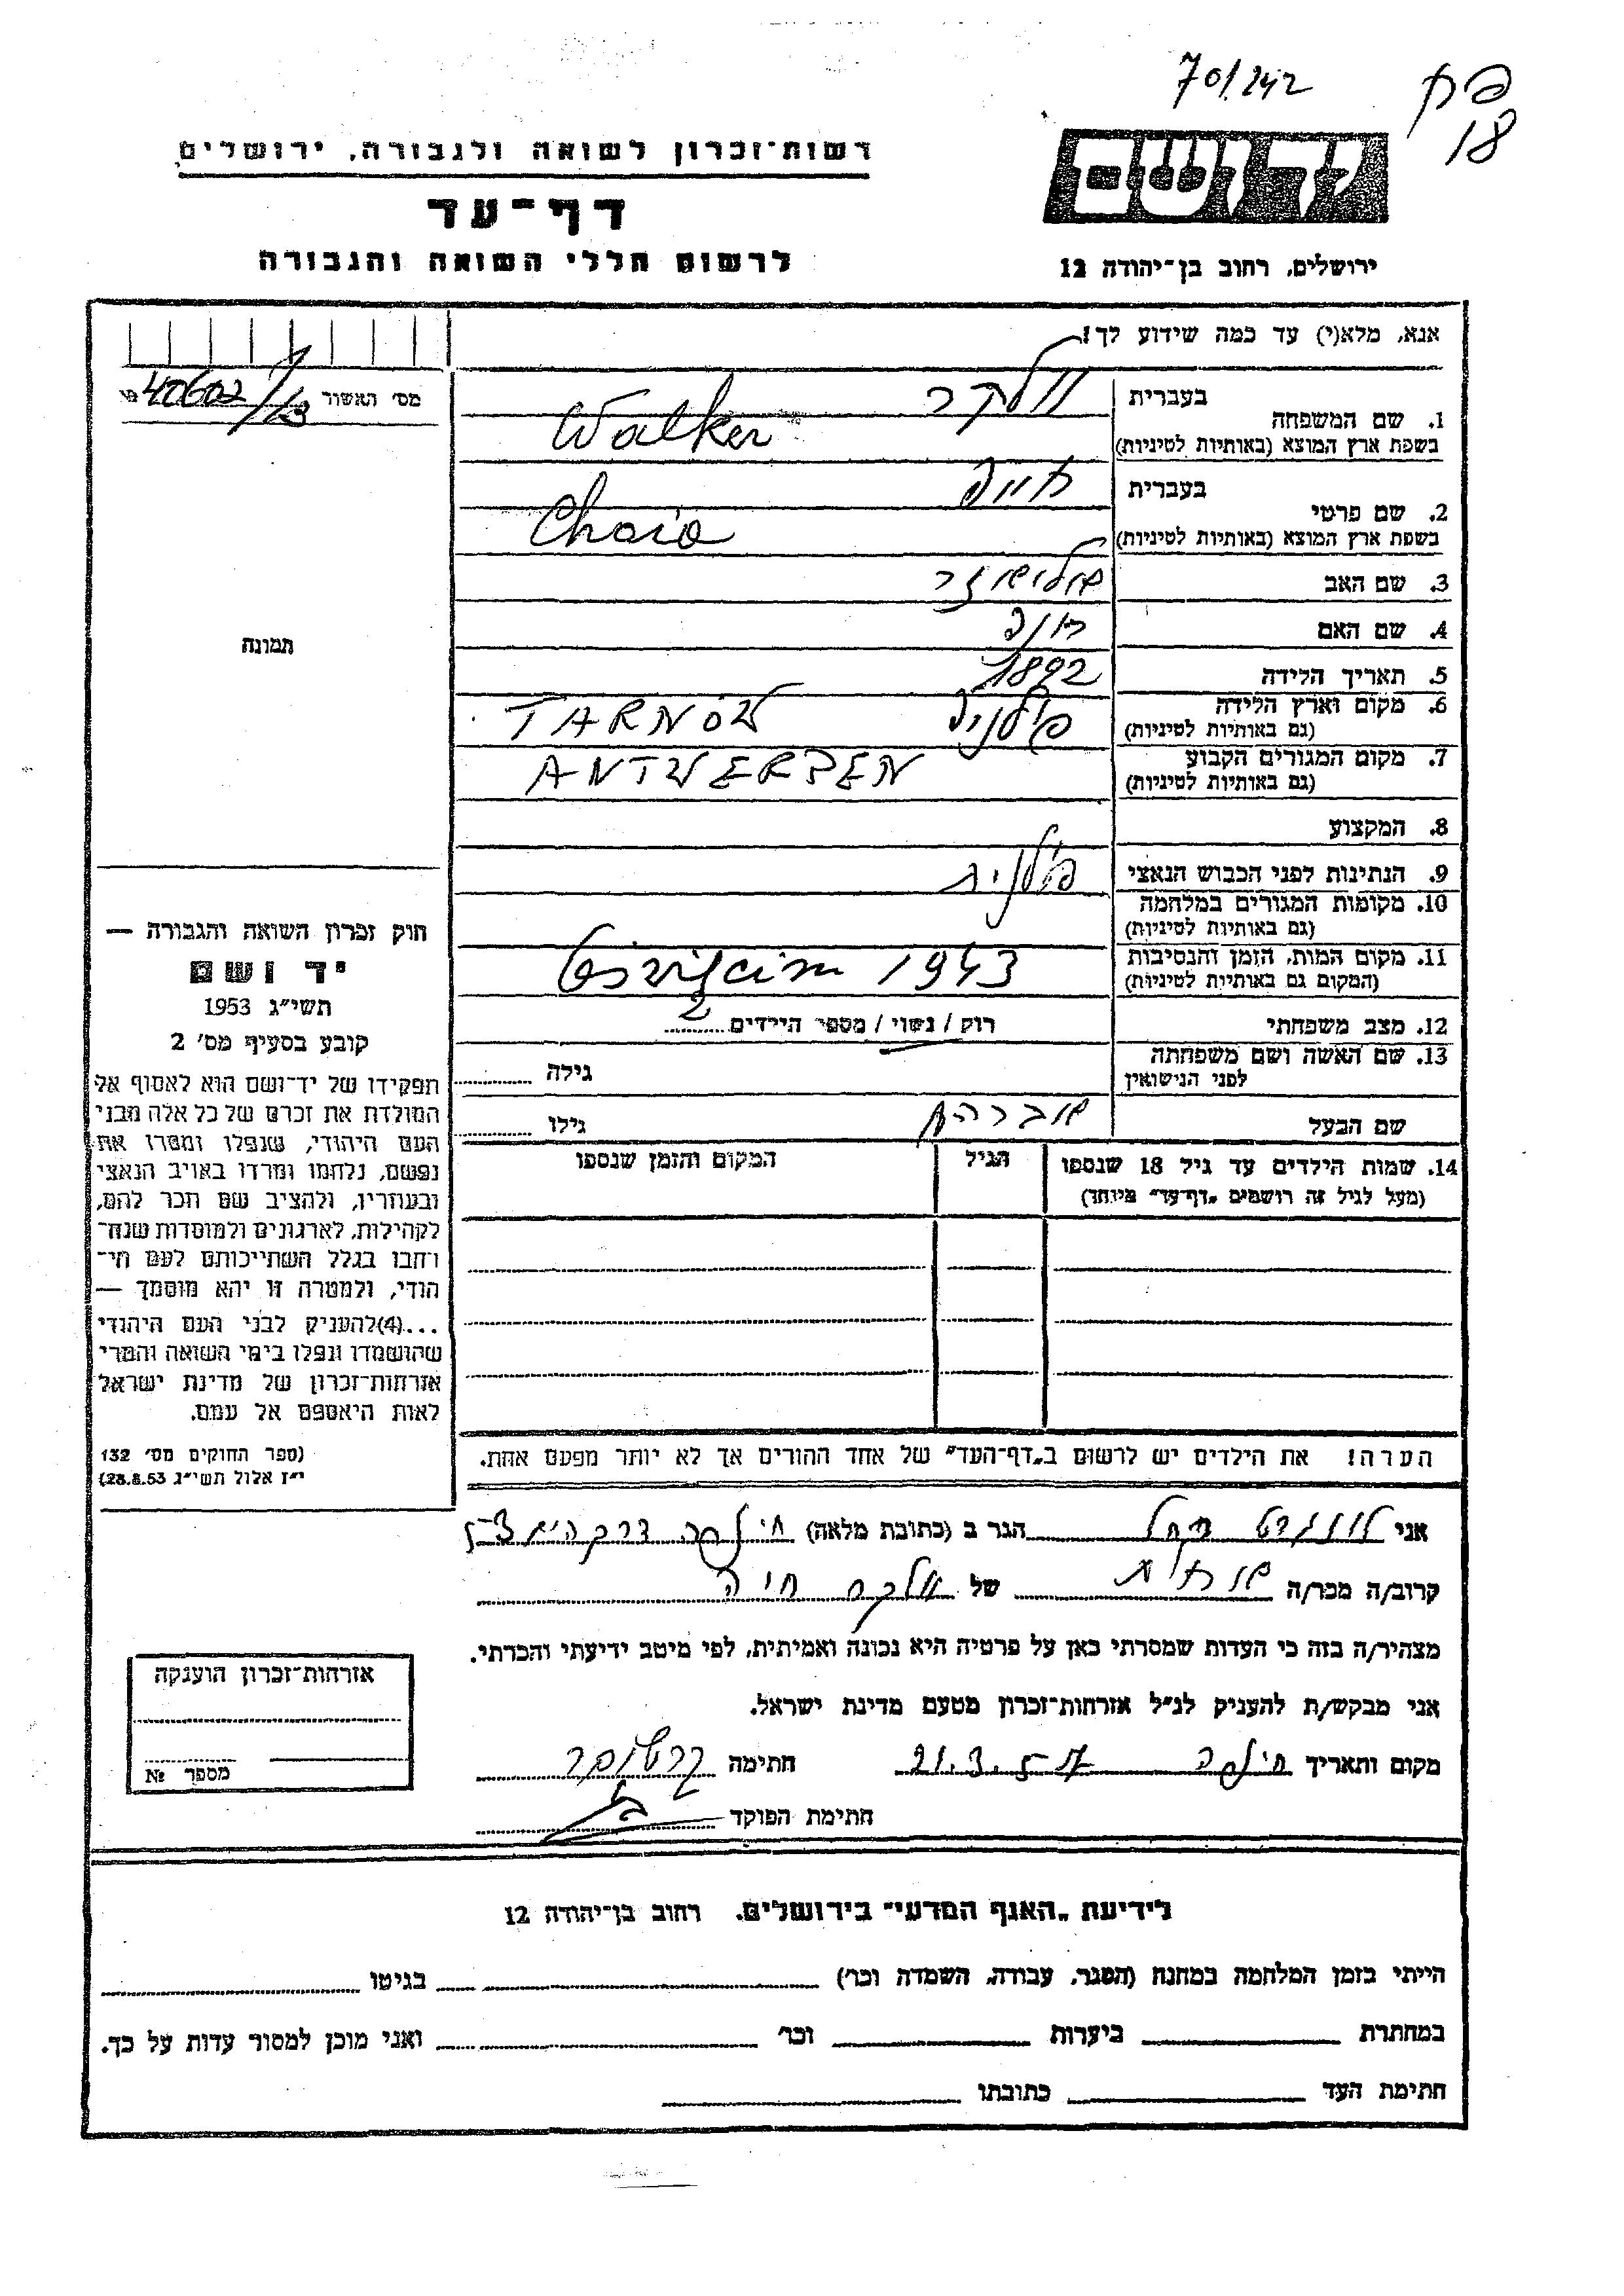 70/242
פק
18
רשות־זכרון לשואה ולגבורה, ירושלים
יד ושם
דף־עד
לרשום חללי השואה והגבורה
ירושלים, רחוב בן־יהודה 12
אנא, מלא(י) עד כמה שידוע לך!
מס' האשור № 40602/13
בעברית וולקר
1. שם המשפחה
בשפת ארץ המוצא (באותיות לטיניות) Walker
בעברית חייה
2. שם פרטי
בשפת ארץ המוצא (באותיות לטיניות) Chaia
3. שם האב אליעזר
4. שם האם חנה
5. תאריך הלידה 1892
6. מקום וארץ הלידה
(גם באותיות לטיניות) פולניה TARNÓW
7. מקום המגורים הקבוע
(גם באותיות לטיניות) ANTWERPEN
8. המקצוע
9. הנתינות לפני הכבוש הנאצי פולנית
10. מקומות המגורים במלחמה
(גם באותיות לטיניות)
11. מקום המות, הזמן והנסיבות
(המקום גם באותיות לטיניות) 1943
12. מצב משפחתי רוק / נשוי / מספר הילדים 2
13. שם האשה ושם משפחתה
לפני הנישואין גילה
שם הבעל אברהם גילו
14. שמות הילדים עד גיל 18 שנספו הגיל המקום והזמן שנספו
(מעל לגיל זה רושמים „דף־עד" מיוחד)
הערה! את הילדים יש לרשום ב„דף־העד" של אחד ההורים אך לא יותר מפעם אחת.
תמונה
חוק זכרון השואה והגבורה —
יד ושם
תשי"ג 1953
קובע בסעיף מס' 2
תפקידו של יד־ושם הוא לאסוף אל
המולדת את זכרם של כל אלה מבני
העם היהודי, שנפלו ומסרו את
נפשם, נלחמו ומרדו באויב הנאצי
ובעוזריו, ולהציב שם וזכר להם,
לקהילות, לארגונים ולמוסדות שנח־
רבו בגלל השתייכותם לעם הי־
הודי, ולמטרה זו יהא מוסמך —
...(4)להעניק לבני העם היהודי
שהושמדו ונפלו בימי השואה והמרי
אזרחות־זכרון של מדינת ישראל
לאות היאספם אל עמם.
(ספר החוקים מס' 132
י"ז אלול תשי"ג 28.8.53)
אני רחל הגר ב (כתובת מלאה) חיפה
קרוב/ה מכר/ה אחות של ולקר חיה
מצהיר/ה בזה כי העדות שמסרתי כאן על פרטיה היא נכונה ואמיתית, לפי מיטב ידיעתי והכרתי.
אני מבקש/ת להעניק לנ"ל אזרחות־זכרון מטעם מדינת ישראל.
מקום ותאריך חיפה 21.3.57 חתימה
חתימת הפוקד
אזרחות־זכרון הוענקה
מספר №
לידיעת „האגף המדעי" בירושלים, רחוב בן־יהודה 12
הייתי בזמן המלחמה במחנה (הסגר, עבודה, השמדה וכו') בגיטו
במחתרת ביערות וכו' ואני מוכן למסור עדות על כך.
חתימת העד כתובתו